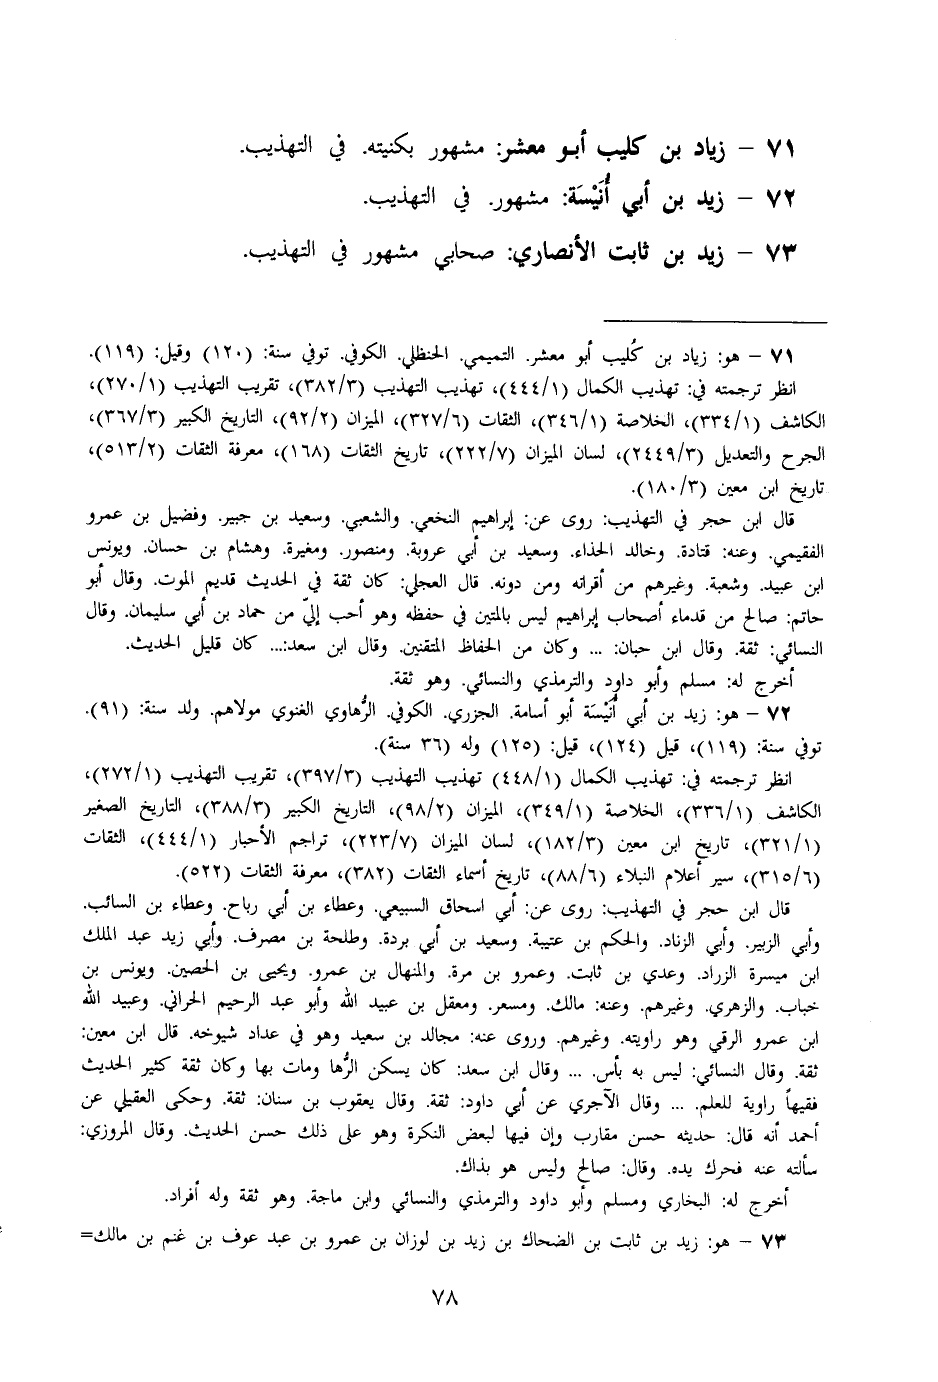 ٧١ – زياد بن كليب أبو معشر: مشهور بكنيته. في التهذيب.
٧٢ – زيد بن أبي أُنَيْسَة: مشهور. في التهذيب.
٧٣ – زيد بن ثابت الأنصاري: صحابي مشهور في التهذيب.
٧١ – هو: زياد بن كُليب أبو معشر. التميمي. الحنظلي. الكوفي. توفي سنة: (١٢٠) وقيل: (١١٩).
انظر ترجمته في: تهذيب الكمال (٤٤٤/١)، تهذيب التهذيب (٣٨٢/٣)، تقريب التهذيب (٢٧٠/١)،
الكاشف (٣٣٤/١)، الخلاصة (٣٤٦/١)، الثقات (٣٢٧/٦)، الميزان (٩٢/٢)، التاريخ الكبير (٣٦٧/٣)،
الجرح والتعديل (٢٤٤٩/٣)، لسان الميزان (٢٢٢/٧)، تاريخ الثقات (١٦٨)، معرفة الثقات (٥١٣/٢)،
تاريخ ابن معين (١٨٠/٣).
قال ابن حجر في التهذيب: روى عن: إبراهيم النخعي. والشعبي. وسعيد بن جبير. وفضيل بن عمرو
الفقيمي. وعنه: قتادة. وخالد الحذاء. وسعيد بن أبي عروبة. ومنصور. ومغيرة. وهشام بن حسان. ويونس
ابن عبيد. وشعبة. وغيرهم من أقرانه ومن دونه. قال العجلي: كان ثقة في الحديث قديم الموت. وقال أبو
حاتم: صالح من قدماء أصحاب إبراهيم ليس بالمتين في حفظه وهو أحب إليّ من حماد بن أبي سليمان. وقال
النسائي: ثقة. وقال ابن حبان: ... وكان من الحفاظ المتقنين. وقال ابن سعد:... كان قليل الحديث.
أخرج له: مسلم وأبو داود والترمذي والنسائي. وهو ثقة.
٧٢ – هو: زيد بن أبي أُنَيْسَة أبو أسامة. الجزري. الكوفي. الرُّهاوي الغنوي مولاهم. ولد سنة: (٩١).
توفي سنة: (١١٩)، قيل (١٢٤)، قيل: (١٢٥) وله (٣٦ سنة).
انظر ترجمته في: تهذيب الكمال (٤٤٨/١) تهذيب التهذيب (٣٩٧/٣)، تقريب التهذيب (٢٧٢/١)،
الكاشف (٣٣٦/١)، الخلاصة (٣٤٩/١)، الميزان (٩٨/٢)، التاريخ الكبير (٣٨٨/٣)، التاريخ الصغير
(٣٢١/١)، تاريخ ابن معين (١٨٢/٣)، لسان الميزان (٢٢٣/٧)، تراجم الأحبار (٤٤٤/١)، الثقات
(٣١٥/٦)، سير أعلام النبلاء (٨٨/٦)، تاريخ أسماء الثقات (٣٨٢)، معرفة الثقات (٥٢٢).
قال ابن حجر في التهذيب: روى عن: أبي اسحاق السبيعي. وعطاء بن أبي رباح. وعطاء بن السائب.
وأبي الزبير. وأبي الزناد. والحكم بن عتيبة. وسعيد بن أبي بردة. وطلحة بن مصرف. وأبي زيد عبد الملك
ابن ميسرة الزراد. وعدي بن ثابت. وعمرو بن مرة. والمنهال بن عمرو. ويحيى بن الحصين. ويونس بن
خباب. والزهري. وغيرهم. وعنه: مالك. ومسعر. ومعقل بن عبيد الله وأبو عبد الرحيم الحراني. وعبيد الله
ابن عمرو الرقي وهو راويته. وغيرهم. وروى عنه: مجالد بن سعيد وهو في عداد شيوخه. قال ابن معين:
ثقة. وقال النسائي: ليس به بأس. ... وقال ابن سعد: كان يسكن الرُّها ومات بها وكان ثقة كثير الحديث
فقيهاً راوية للعلم. ... وقال الآجري عن أبي داود: ثقة. وقال يعقوب بن سنان: ثقة. وحكى العقيلي عن
أحمد أنه قال: حديثه حسن مقارب وإن فيها لبعض النكرة وهو على ذلك حسن الحديث. وقال المروزي:
سألته عنه فحرك يده. وقال: صالح وليس هو بذاك.
أخرج له: البخاري ومسلم وأبو داود والترمذي والنسائي وابن ماجة. وهو ثقة وله أفراد.
٧٣ – هو: زيد بن ثابت بن الضحاك بن زيد بن لوزان بن عمرو بن عبد عوف بن غنم بن مالك=
٧٨